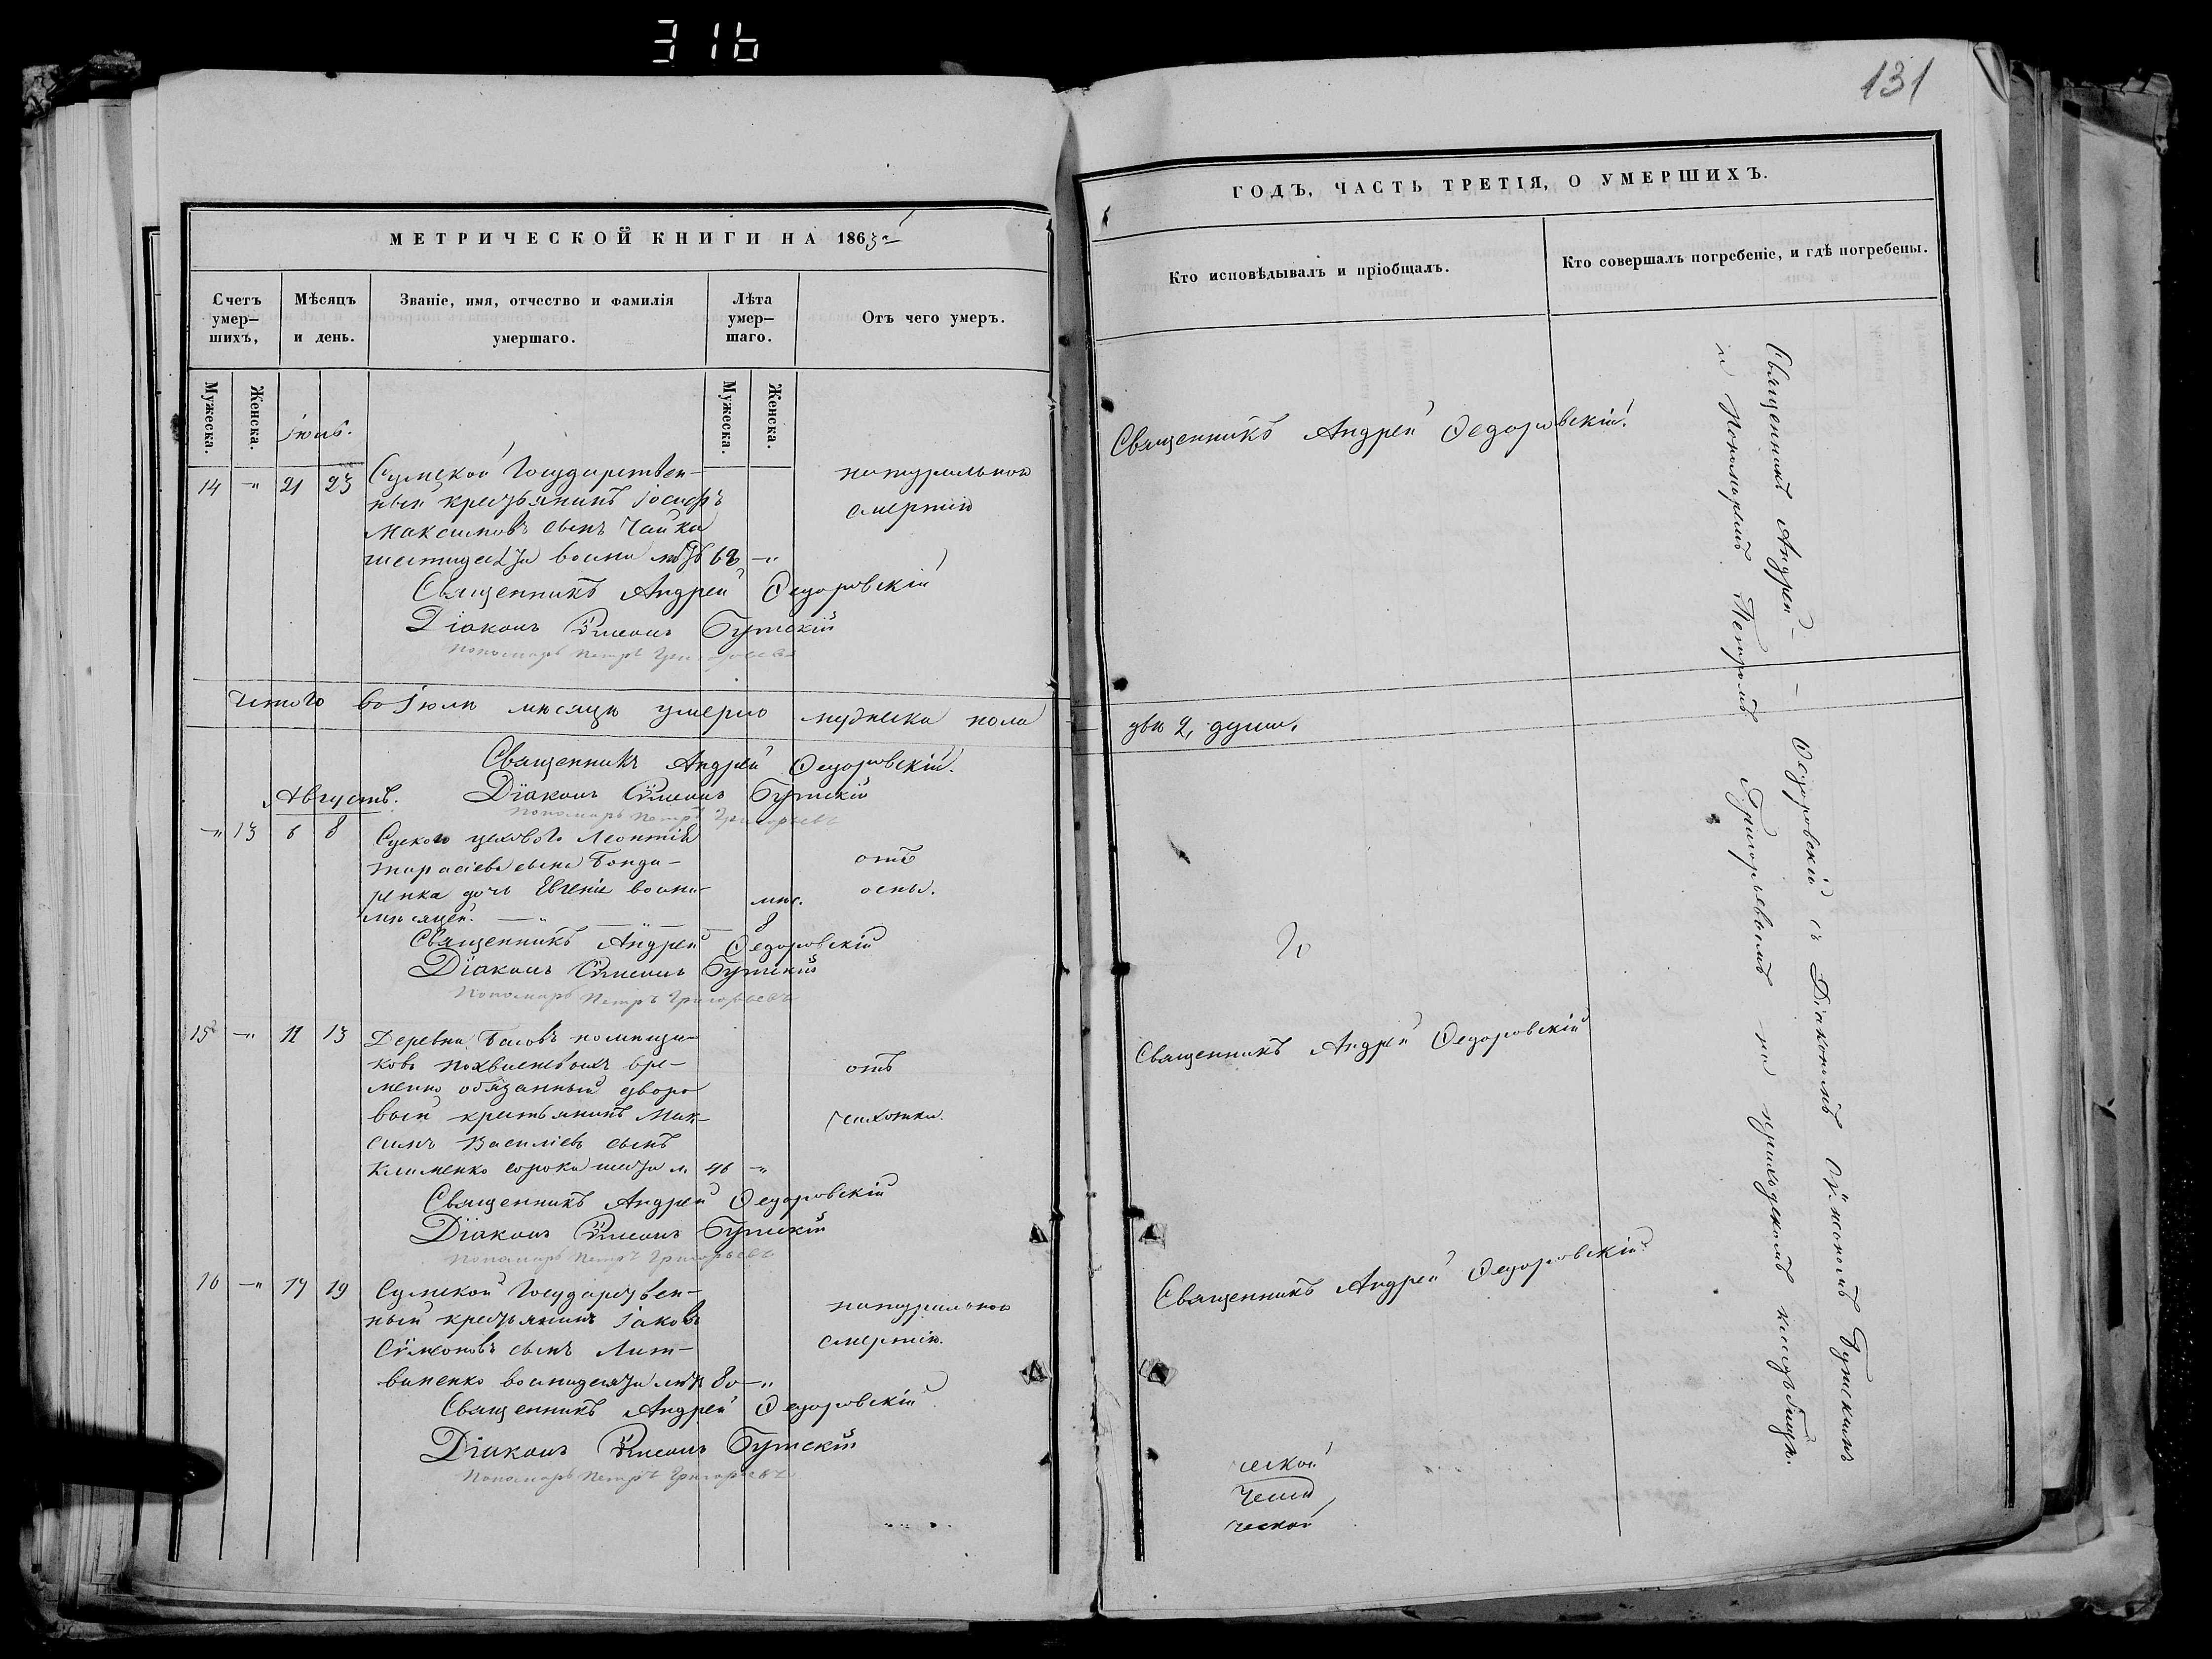 316
131
МЕТРИЧЕСКОЙ КНИГИ НА 1863
Счетъ умер-шихъ,
Мѣсяцъ и день.
Званіе, имя, отчество и фамилія умершаго.
Лѣта умер-шаго.
Отъ чего умеръ.
Мужеска.
Женска.
Мужеска.
Женска.
Іюль.
14 -"- 21 23 Сумской Государствен- натуральною
ный крестьянинъ Іосифъ смертію
Максимовъ сынъ Чайка
шестидесяти восьми лѣтъ 68 -"-
Священникъ Андрей Федоровскій
Діаконъ Сѵмеонъ Бутскій
Пономарь Петръ Григорьевъ
Итого во Іюлѣ мѣсяцѣ умерло мужеска пола
Священникъ Андрей Федоровскій.
Августъ. Діаконъ Сѵмеонъ Бутскій
Пономарь Петръ Григорьевъ
-"- 13 6 8 цеховаго Леонтія
Тарасіева сына Бонда- отъ
ренка дочь Евгенія восьми оспы.
мѣсяцей. мѣс. 8
Священникъ Андрей Федоровскій
Діаконъ Сѵмеонъ Бутскій
Пономарь Петръ Григорьевъ
15 -"- 11 13 Деревни Басовъ помѣщи-
ковъ вре- отъ
менно обязанный дворо
вый крестьянинъ Мак- чахотки.
симъ Василіевъ сынъ
Клименко сорока шести л. 46 -"-
Священникъ Андрей Федоровскій
Діаконъ Сѵмеонъ Бутскій
Пономарь Петръ Григорьевъ
16 -"- 17 19 Сумской Государствен-
ный крестьянинъ Іаковъ натуральною
Сѵмеоновъ сынъ Лит- смертію.
виненко восмидесяти лѣтъ 80 -"-
Священникъ Андрей Федоровскій
Діаконъ Сѵмеонъ Бутскій
Пономарь Петръ Григорьевъ
ГОДЪ, ЧАСТЬ ТРЕТІЯ, О УМЕРШИХЪ.
Кто исповѣдывалъ и пріобщалъ.
Кто совершалъ погребеніе, и гдѣ погребены.
Священникъ Андрей Федоровскій.
двѣ 2, души.
Священникъ Андрей Федоровскій
Священникъ Андрей Федоровскій.
ческой
Священникъ Андрей - - Федоровскій съ Діакономъ Сѵмеономъ Бутскимъ
и Пономаремъ Петромъ Григорьевымъ на приходскомъ кладбищѣ.